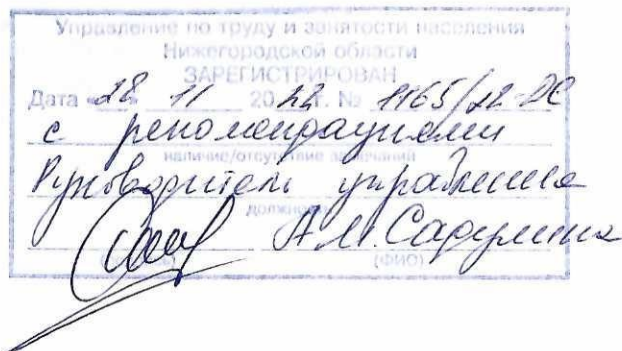 Управление по труду и занятости населения
Нижегородской области
ЗАРЕГИСТРИРОВАН
Дата «28» 11 2022 г. № 1165/22-ДС
с рекомендациями
наличие/отсутствие замечаний
Руководитель управления
должность
А.М.
(ФИО)